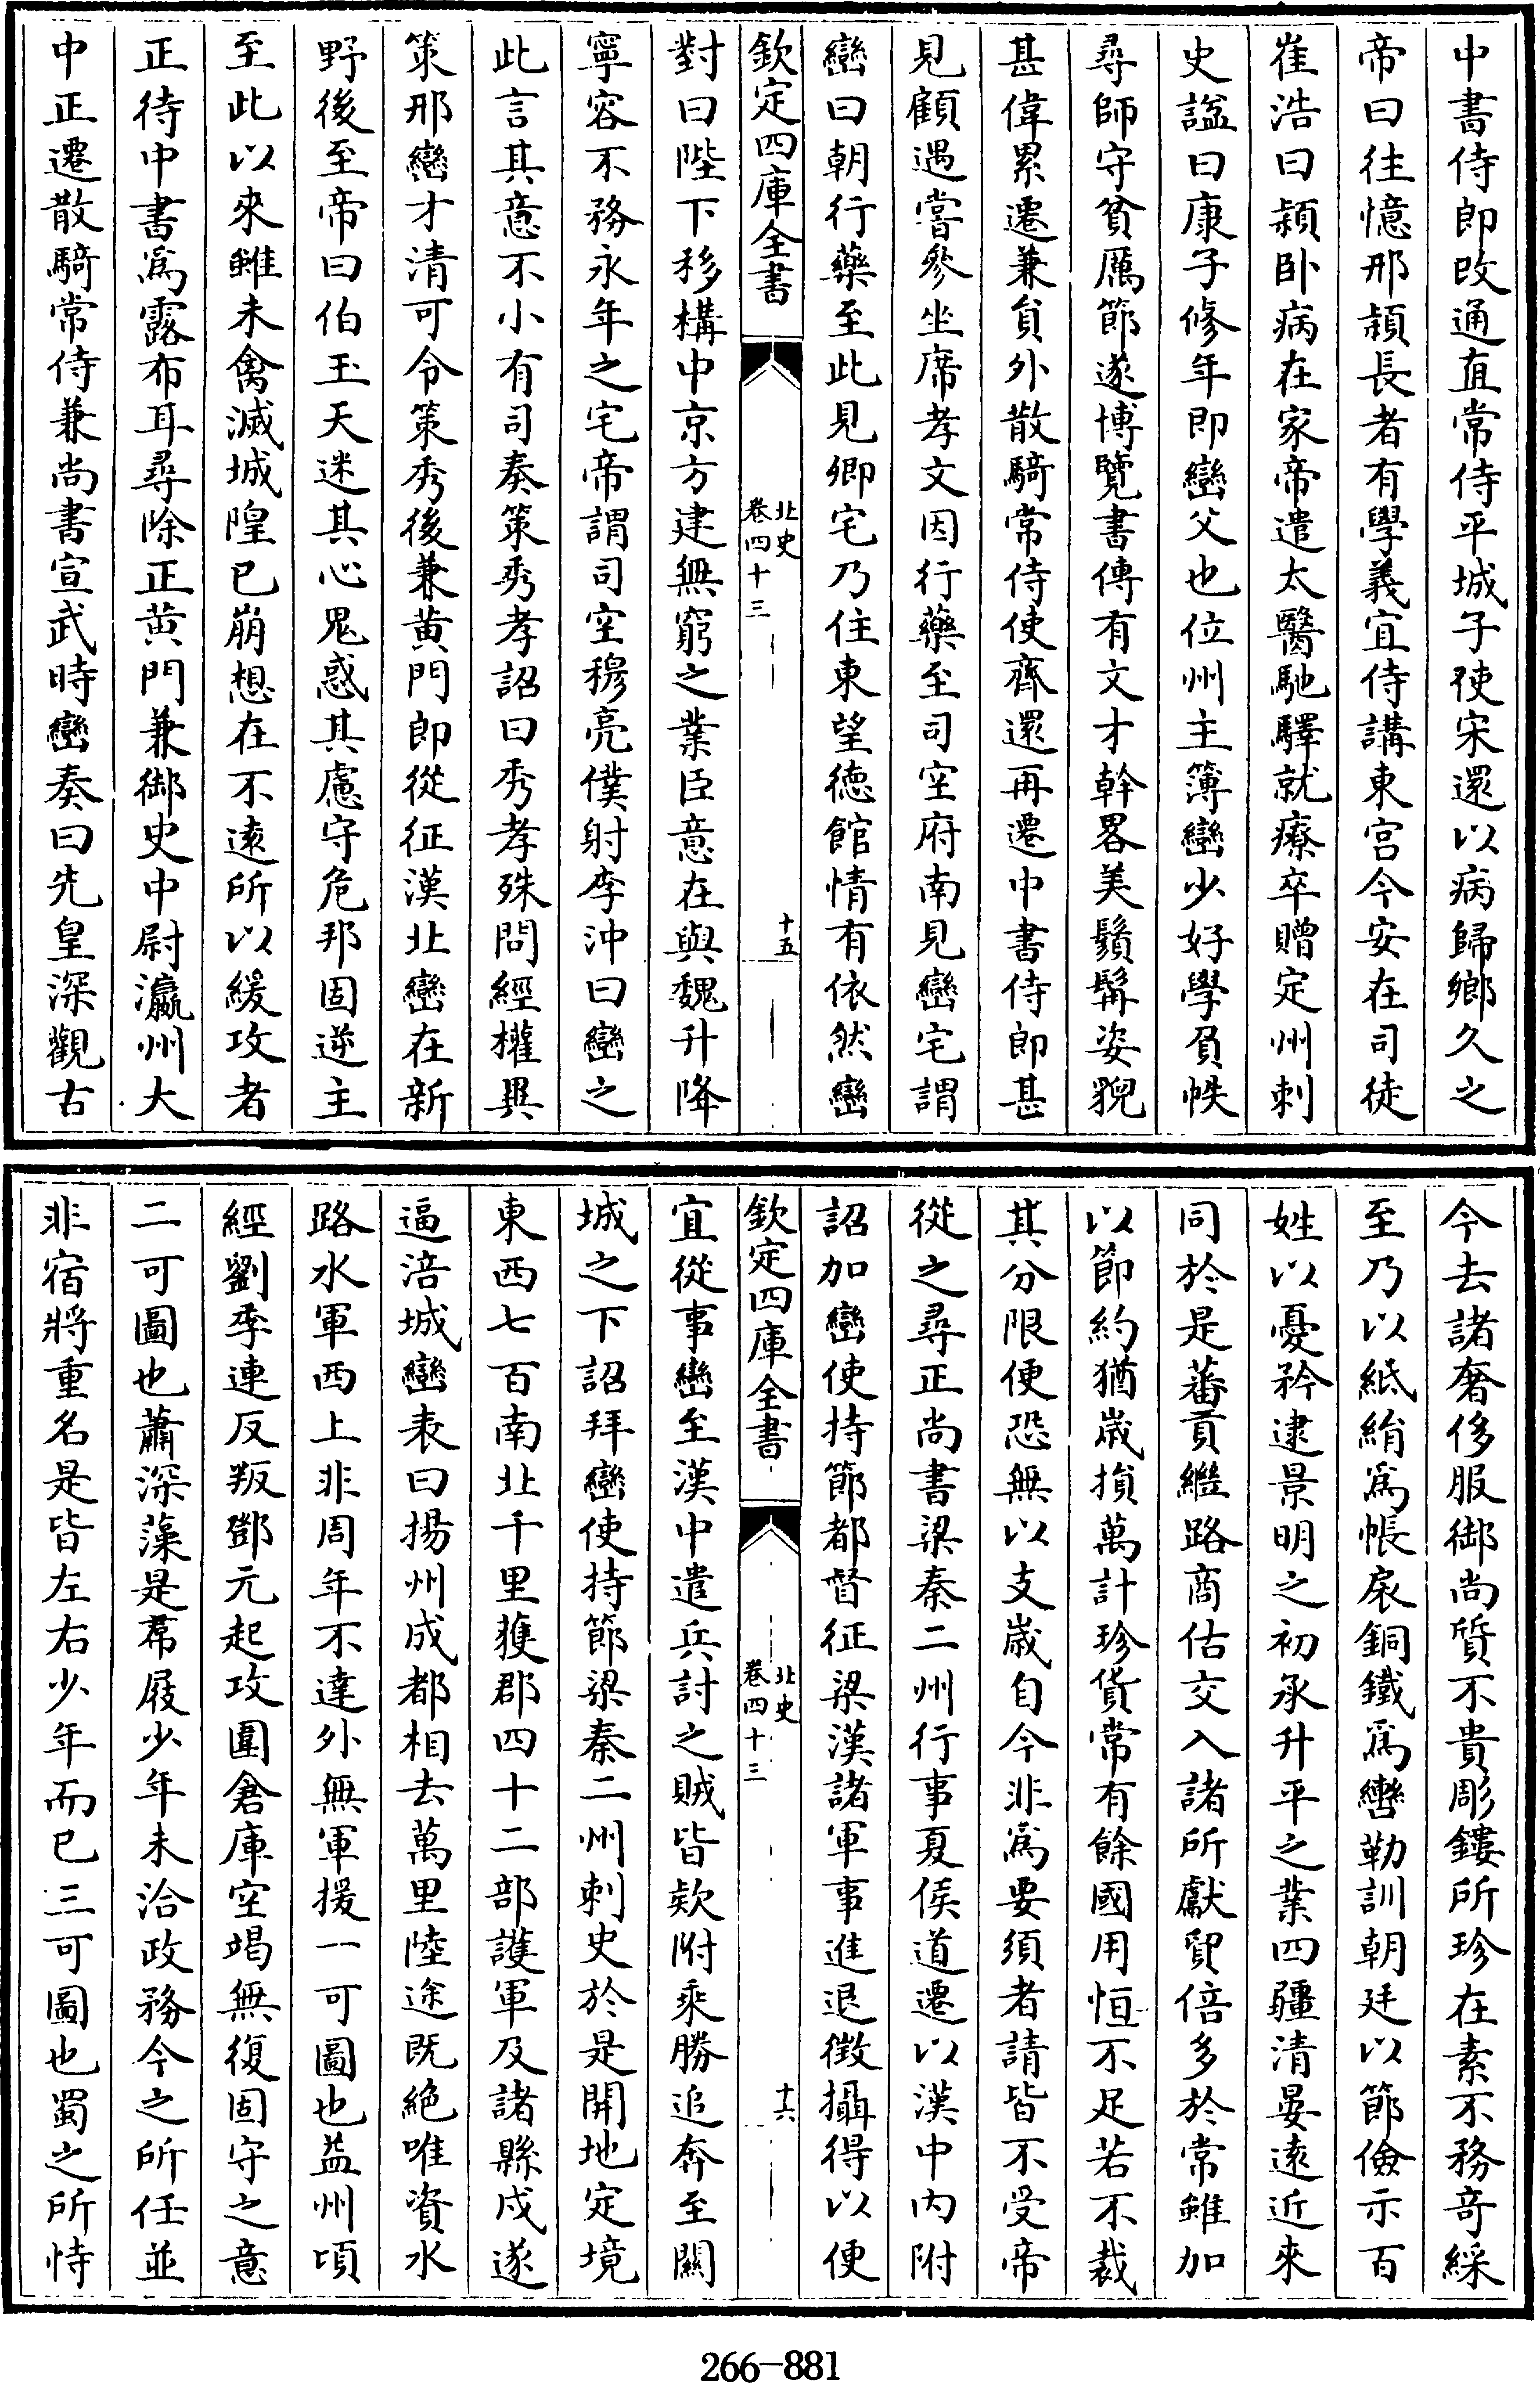 中書侍郎改通直常侍平城子使宋還以病歸鄉久之
帝曰往憶邢頴長者有學義宜侍講東宫今安在司徒
崔浩曰頴卧病在家帝遣太醫馳驛就療卒贈定州刺
史諡曰康子修年即巒父也位州主簿巒少好學負帙
尋師守貧厲節遂博覽書傳有文才幹畧美鬚髯姿貎
甚偉累遷兼貟外散騎常侍使齊還再遷中書侍郎甚
見顧遇嘗參坐席孝文因行藥至司空府南見巒宅謂
巒曰朝行藥至此見卿宅乃住東望德館情有依然巒
欽定四庫全書
北史
卷四十三
十五
對曰陛下移構中京方建無窮之業臣意在與魏升降
寧容不務永年之宅帝謂司空穆亮僕射李沖曰巒之
此言其意不小有司奏策秀孝詔曰秀孝殊問經權異
策邢巒才清可令策秀後兼黄門郎從征漢北巒在新
野後至帝曰伯玉天迷其心鬼惑其慮守危邦固逆主
至此以來雖未禽滅城隍已崩想在不遠所以緩攻者
正待中書為露布耳尋除正黄門兼御史中尉瀛州大
中正遷散騎常侍兼尚書宣武時巒奏曰先皇深觀古
今去諸奢侈服御尚質不貴彫鏤所珍在素不務奇綵
至乃以紙絹為帳扆銅鐵為轡勒訓朝廷以節儉示百
姓以憂矜逮景明之初承升平之業四疆清晏遠近來
同於是蕃貢繼路商估交入諸所獻貿倍多於常雖加
以節約猶歲損萬計珍貨常有餘國用恒不足若不裁
其分限便恐無以支歲自今非為要須者請皆不受帝
從之尋正尚書梁秦二州行事夏侯道遷以漢中内附
詔加巒使持節都督征梁漢諸軍事進退徵攝得以便
欽定四庫全書
北史
卷四十三
十六
宜從事巒至漢中遣兵討之賊皆欵附乘勝追奔至關
城之下詔拜巒使持節梁秦二州刺史於是開地定境
東西七百南北千里獲郡四十二部護軍及諸縣戍遂
逼涪城巒表曰揚州成都相去萬里陸途既絶唯資水
路水軍西上非周年不達外無軍援一可圖也益州頃
經劉季連反叛鄧元起攻圍倉庫空竭無復固守之意
二可圖也蕭深藻是帬屐少年未洽政務今之所任並
非宿將重名是皆左右少年而已三可圖也蜀之所恃
266-881